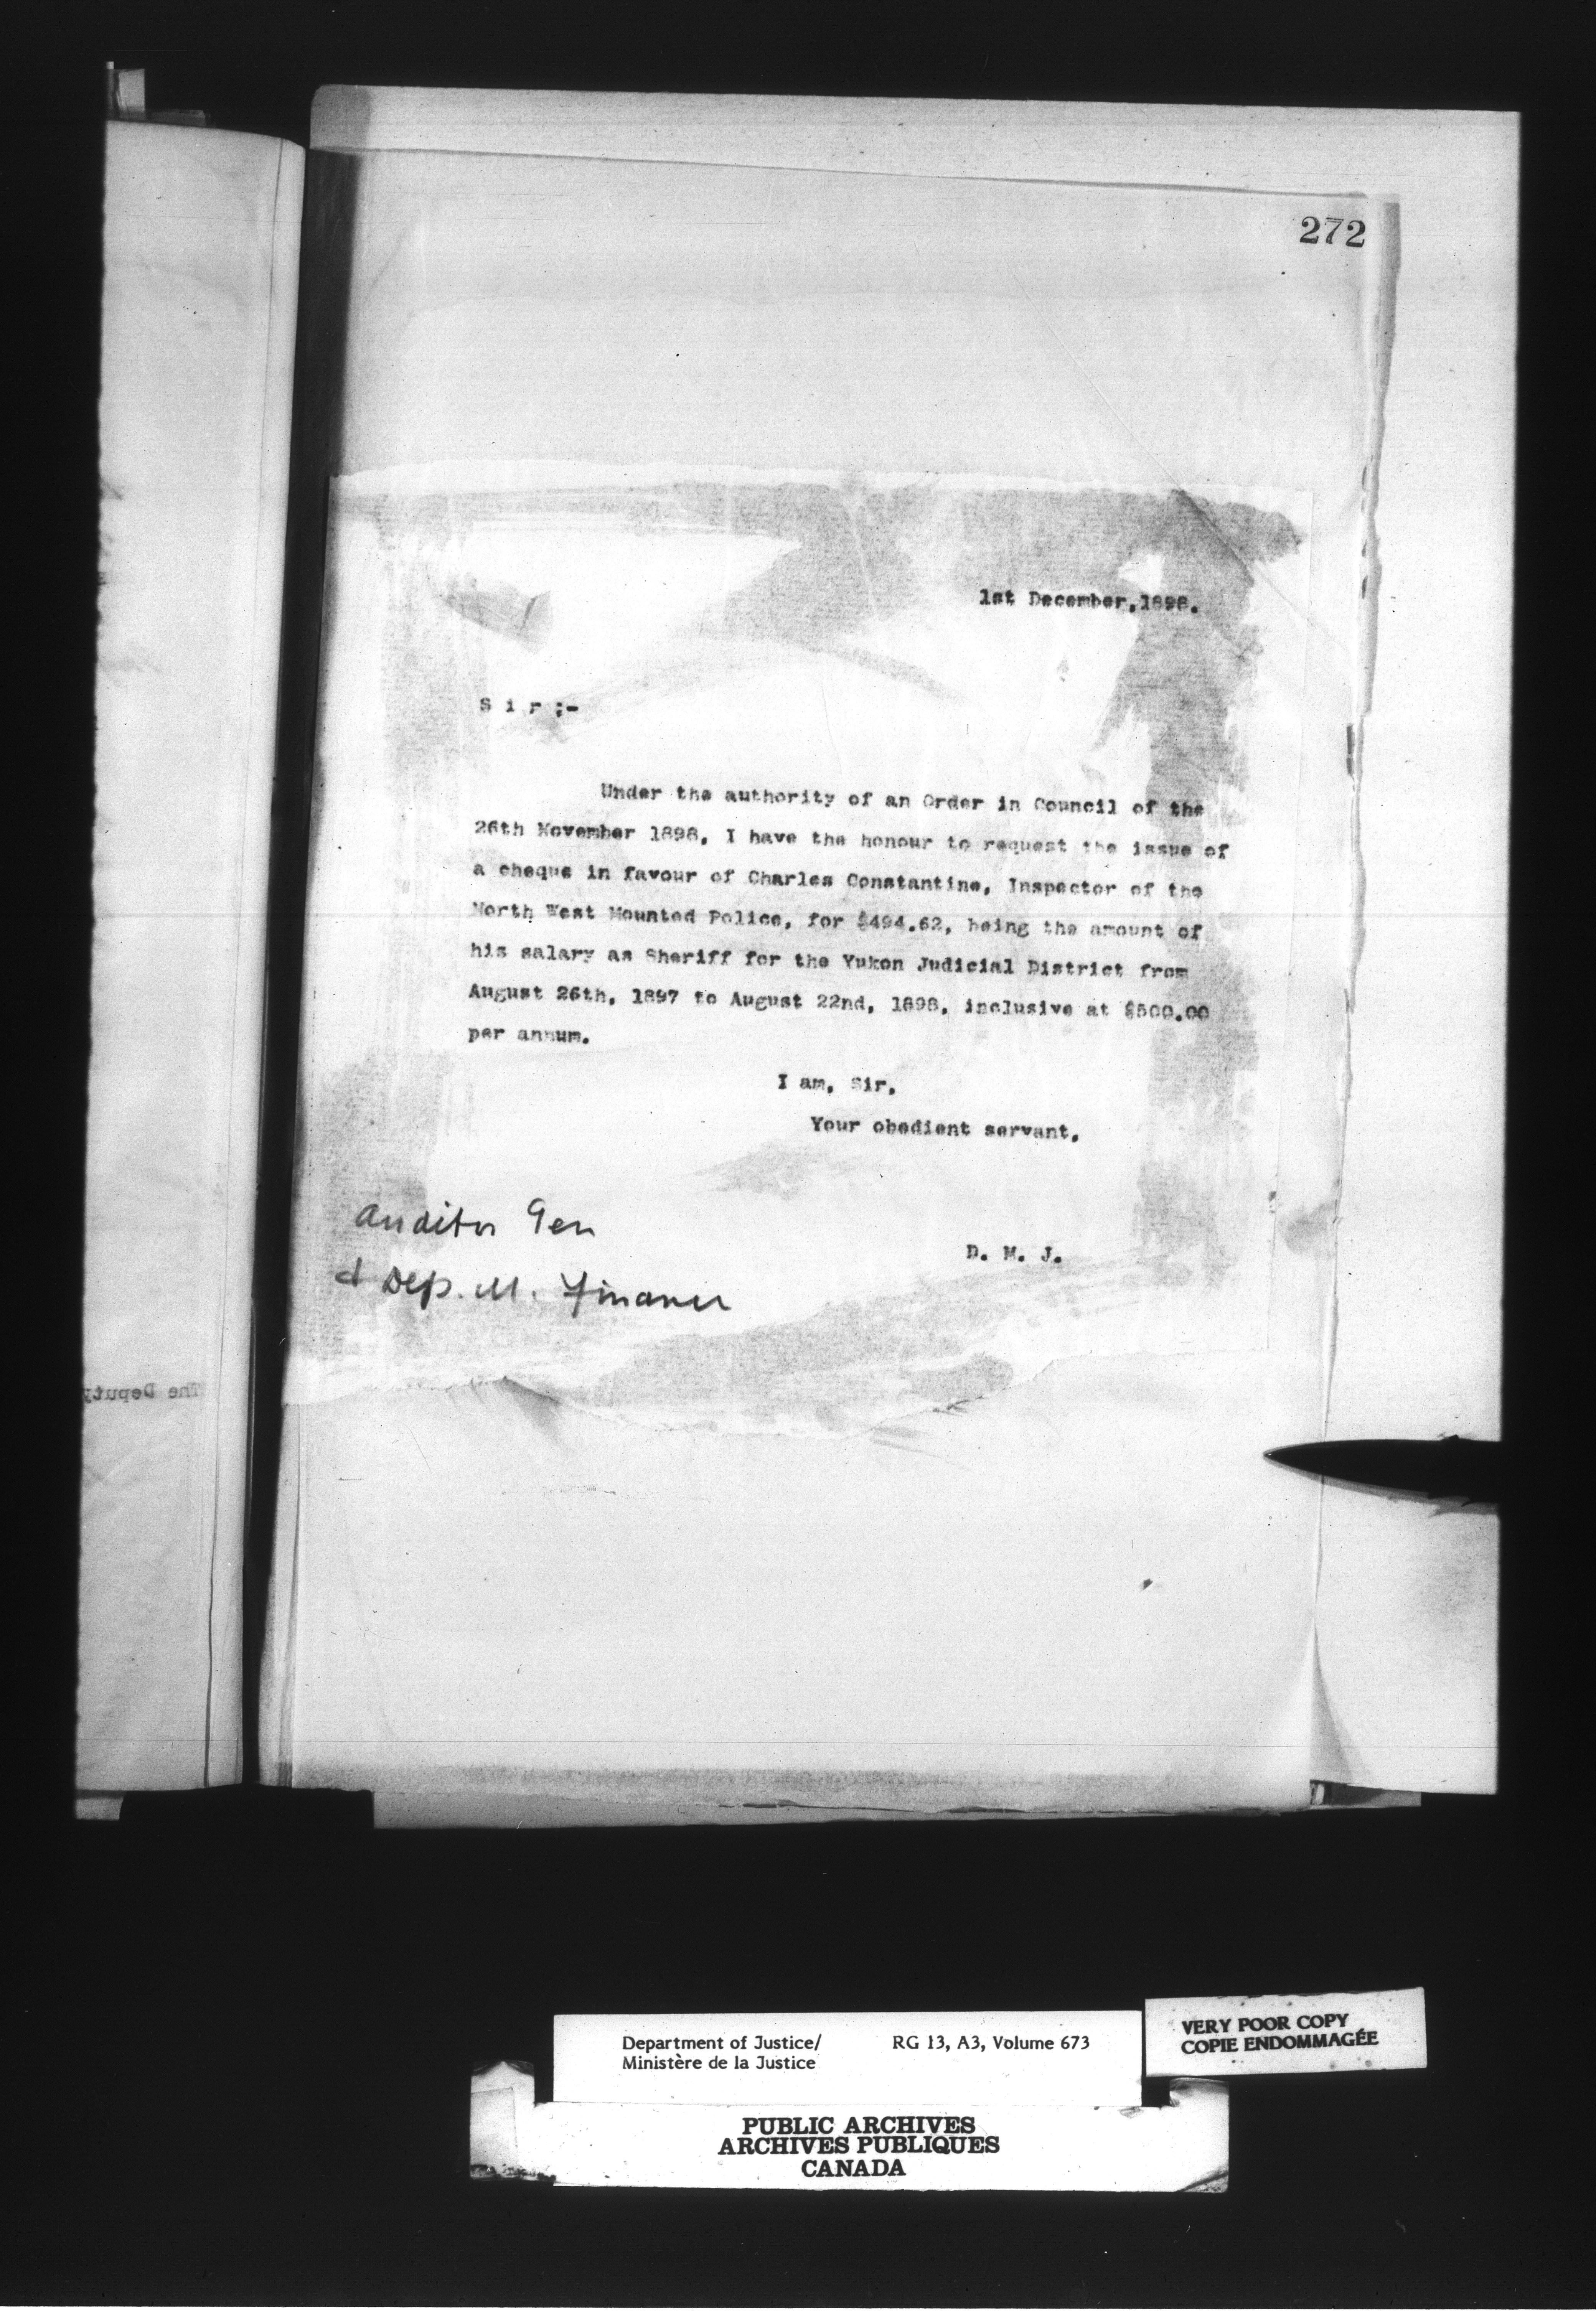 272
1st December,1898.
S i r ;-
Under the authority of an Order in Council of the
26th November 1898, I have the honour to request the issue of
a cheque in favour of Charles Constantine, Inspector of the
North West Mounted Police, for $494.62, being the amount of
his salary as Sheriff for the Yukon Judicial District from
August 26th, 1897 to August 22nd, 1898, inclusive at $500.00
per annum.
I am, Sir,
Your obedient servant,
D. M. J.
Auditor Gen
& Dep. M. Finance
The Deputy
Department of Justice/ RG 13, A3, Volume 673
Ministère de la Justice
VERY POOR COPY
COPIE ENDOMMAGÉE
PUBLIC ARCHIVES
ARCHIVES PUBLIQUES
CANADA